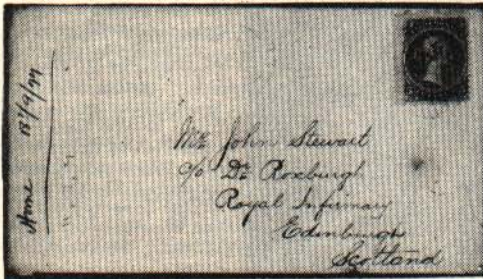 Home 18/9/77
Mr John Stewart
c/o Dr Roxburgh
Royal Infirmary
Edinburgh
Scotland